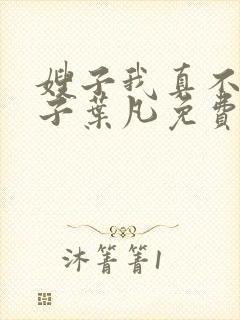 嫂子我真不
子葉凡免費
沐箐箐1